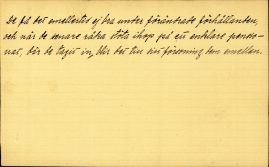 De få det emellertid ej bra under förändrade förhållanden,
och när de senare råka stöta ihop på en enklare pensio-
nat, där de tagit in, blir det till sin försoning dem emellan.